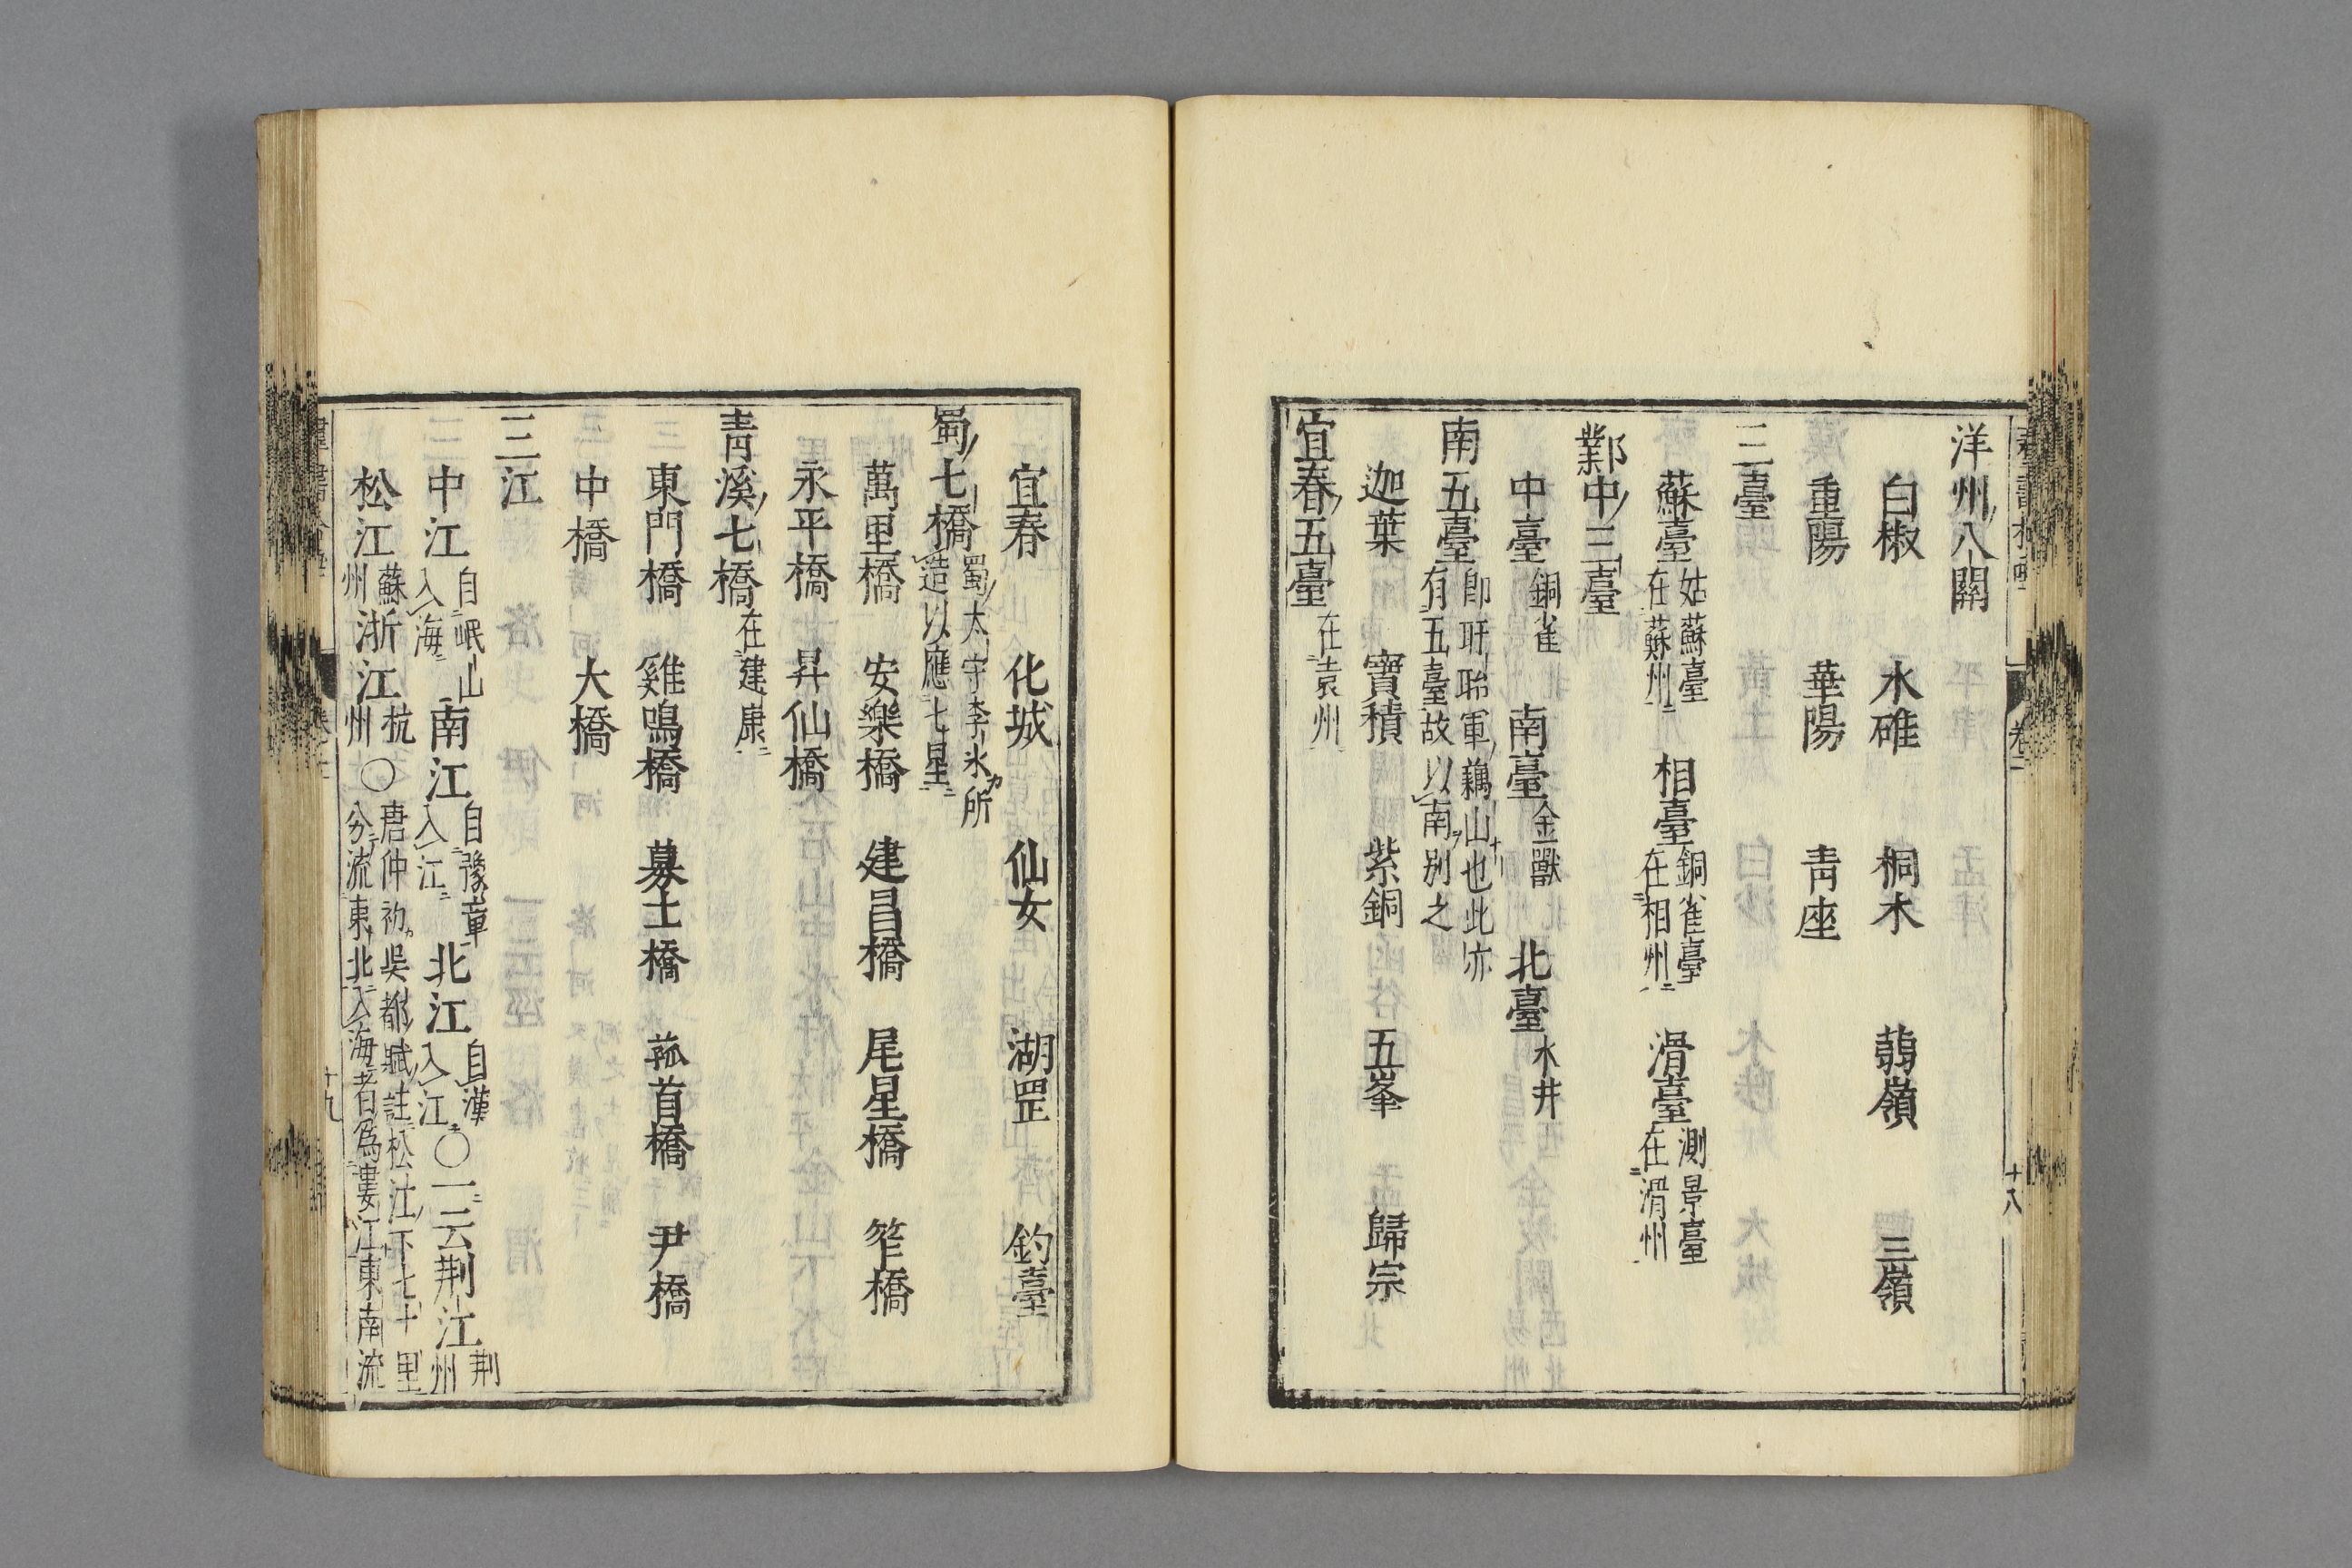 洋州八關
白椒　水碓　桐木　蒻嶺　三嶺
重陽　華陽　靑座
三臺
蘇臺 姑蘇臺在蘇州　相臺 銅雀臺在相州　滑臺 測景臺在滑州
鄴中三臺
中臺 銅雀　南臺 金獸　北臺 水井
南五臺 卽玕聆軍藕山也此亦有五臺故以南別之
迦葉　寶積　紫銅　五峯　歸宗
宜春五臺 在袁州
宜春　化城　仙女　湖罡　釣臺
蜀七橋 蜀太守李氷所造以應七星
萬里橋　安樂橋　建昌橋　尾星橋　笮橋
永平橋　昇仙橋
靑溪七橋 在建康
東門橋　雞鳴橋　募士橋　菰首橋　尹橋
中橋　大橋
三江
中江 自岷山入海　南江 自豫章入江　北江 自漢入江○一云荆江 荆州
松江 蘇州　浙江 杭州○唐仲初吳都賦註松江下七十里分流東北入海者爲婁江東南流